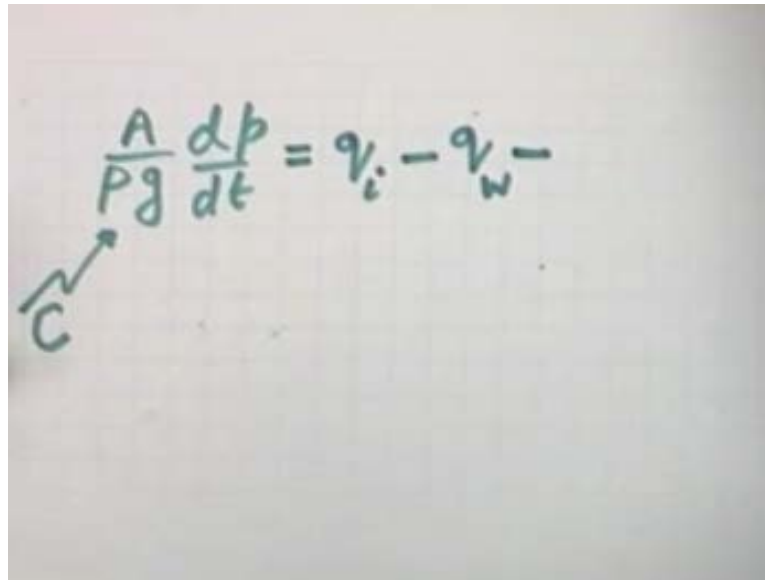 A/ρg dp/dt = q_i - q_w -
C